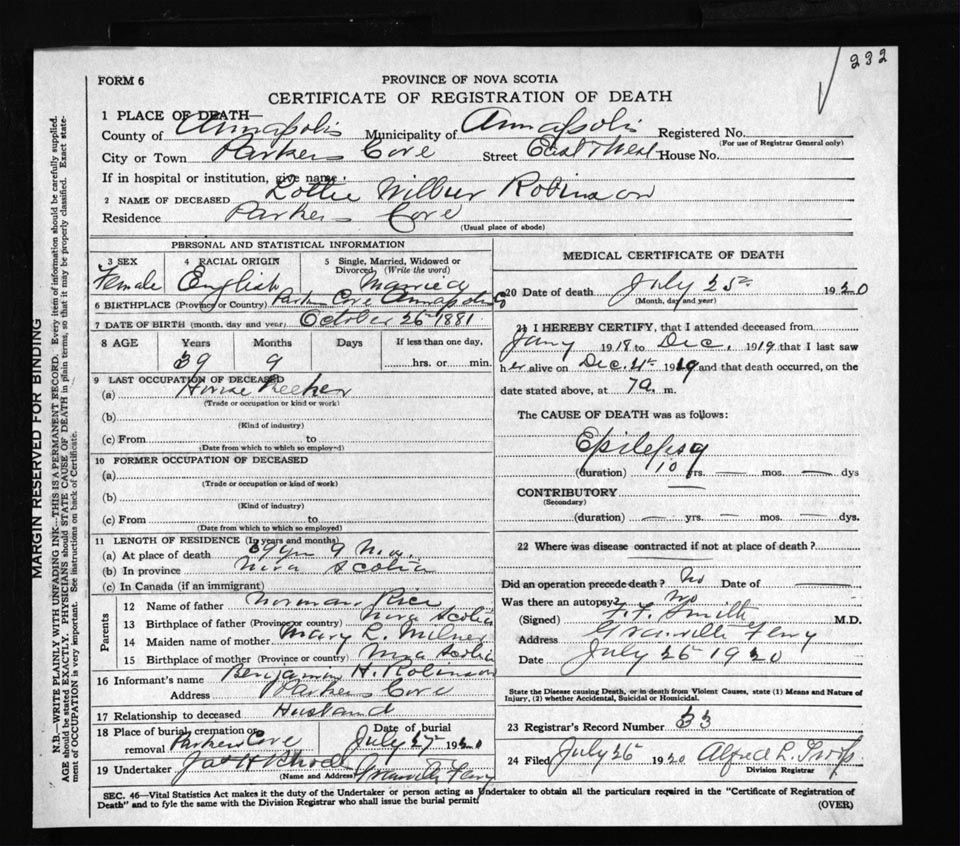 232
FORM 6
PROVINCE OF NOVA SCOTIA
CERTIFICATE OF REGISTRATION OF DEATH
1 PLACE OF DEATH—
County of Annapolis Municipality of Annapolis Registered No.
(For use of Registrar General only)
City or Town Parkers Cove Street East & West House No.
If in hospital or institution, give name
2 NAME OF DECEASED Lottie Wilbur Robinson
Residence Parkers Cove
(Usual place of abode)
PERSONAL AND STATISTICAL INFORMATION
3 SEX Female
4 RACIAL ORIGIN English
5 Single, Married, Widowed or Divorced, (Write the word) Married
6 BIRTHPLACE (Province or Country) Parkers Cove Annapolis
7 DATE OF BIRTH (month, day and year) October 25 1881
8 AGE Years Months Days If less than one day,
39 9 hrs. or min.
9 LAST OCCUPATION OF DECEASED
(a) House Keeker
(Trade or occupation or kind or work)
(b)
(Kind of industry)
(c) From to
(Date from which to which so employed)
10 FORMER OCCUPATION OF DECEASED
(a)
(Trade or occupation or kind of work)
(b)
(Kind of industry)
(c) From to
(Date from which to which so employed)
11 LENGTH OF RESIDENCE (In years and months)
(a) At place of death 39 yrs 9 Mos.
(b) In province Nova Scotia
(c) In Canada (if an immigrant)
Parents
12 Name of father Norman Rice
13 Birthplace of father (Province or country) Nova Scotia
14 Maiden name of mother Mary L. Milner
15 Birthplace of mother (Province or country) Nova Scotia
16 Informant's name Benjamin H. Robinson
Address Parkers Cove
17 Relationship to deceased Husband
18 Place of burial, cremation or removal Parkers Cove Date of burial July 27th 1920
19 Undertaker
(Name and Address) Granville Ferry
MEDICAL CERTIFICATE OF DEATH
20 Date of death July 25th 1920
(Month, day and year)
21 I HEREBY CERTIFY, that I attended deceased from
Jany 1918 to Dec. 1919 that I last saw
her alive on Dec. 4th 1919 and that death occurred, on the
date stated above, at 7a. m.
The CAUSE OF DEATH was as follows:
Epilepsy
(duration) 10 yrs. — mos. — dys
CONTRIBUTORY —
(Secondary)
(duration) — yrs. — mos. — dys.
22 Where was disease contracted if not at place of death?
Did an operation precede death? No Date of
Was there an autopsy? No
(Signed) F. F. Smith M.D.
Address Granville Ferry
Date July 26 1920
State the Disease causing Death, or in death from Violent Causes, state (1) Means and Nature of
Injury, (2) whether Accidental, Suicidal or Homicidal.
23 Registrar's Record Number 33
24 Filed July 26 1920 Alfred L.
Division Registrar
SEC. 46—Vital Statistics Act makes it the duty of the Undertaker or person acting as Undertaker to obtain all the particulars required in the "Certificate of Registration of
Death" and to fyle the same with the Division Registrar who shall issue the burial permit
(OVER)
MARGIN RESERVED FOR BINDING
N.B.—WRITE PLAINLY WITH UNFADING INK—THIS IS A PERMANENT RECORD. Every item of information should be carefully supplied.
AGE should be stated EXACTLY. PHYSICIANS should STATE CAUSE OF DEATH in plain terms, so that it may be properly classified. Exact state-
ment of OCCUPATION is very important. See instructions on back of Certificate.